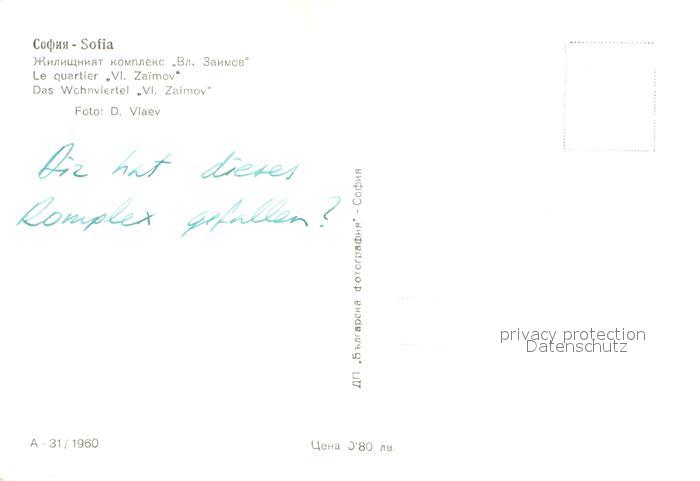 София - Sofia
Жилищният комплекс „Вл. Заимов"
Le quartier „Vl. Zaïmov"
Das Wohnviertel „Vl. Zaimov"
Foto: D. Vlaev
Dir hat dieses
Komplex gefallen?
ДП „Българска фотография" - София
privacy protection
Datenschutz
А - 31 / 1960
Цена 0'80 лв.